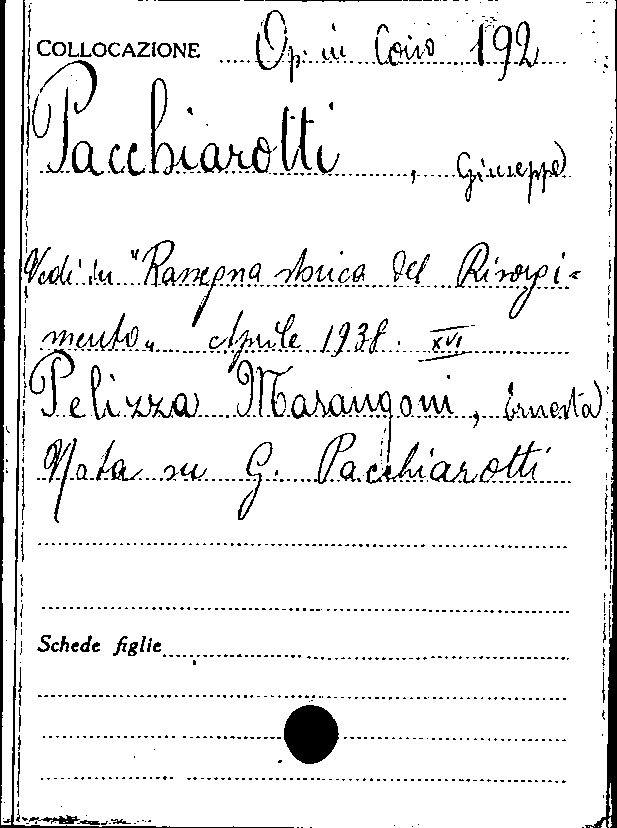 COLLOCAZIONE Op. in Corso 192
Pacchiarotti, Giuseppe
Vedi in "Rassegna storica del Risorgi-
mento„ Aprile 1938. XVI
Pelizza Marangoni, Ernesta
Nota su G. Pacchiarotti
Schede figlie